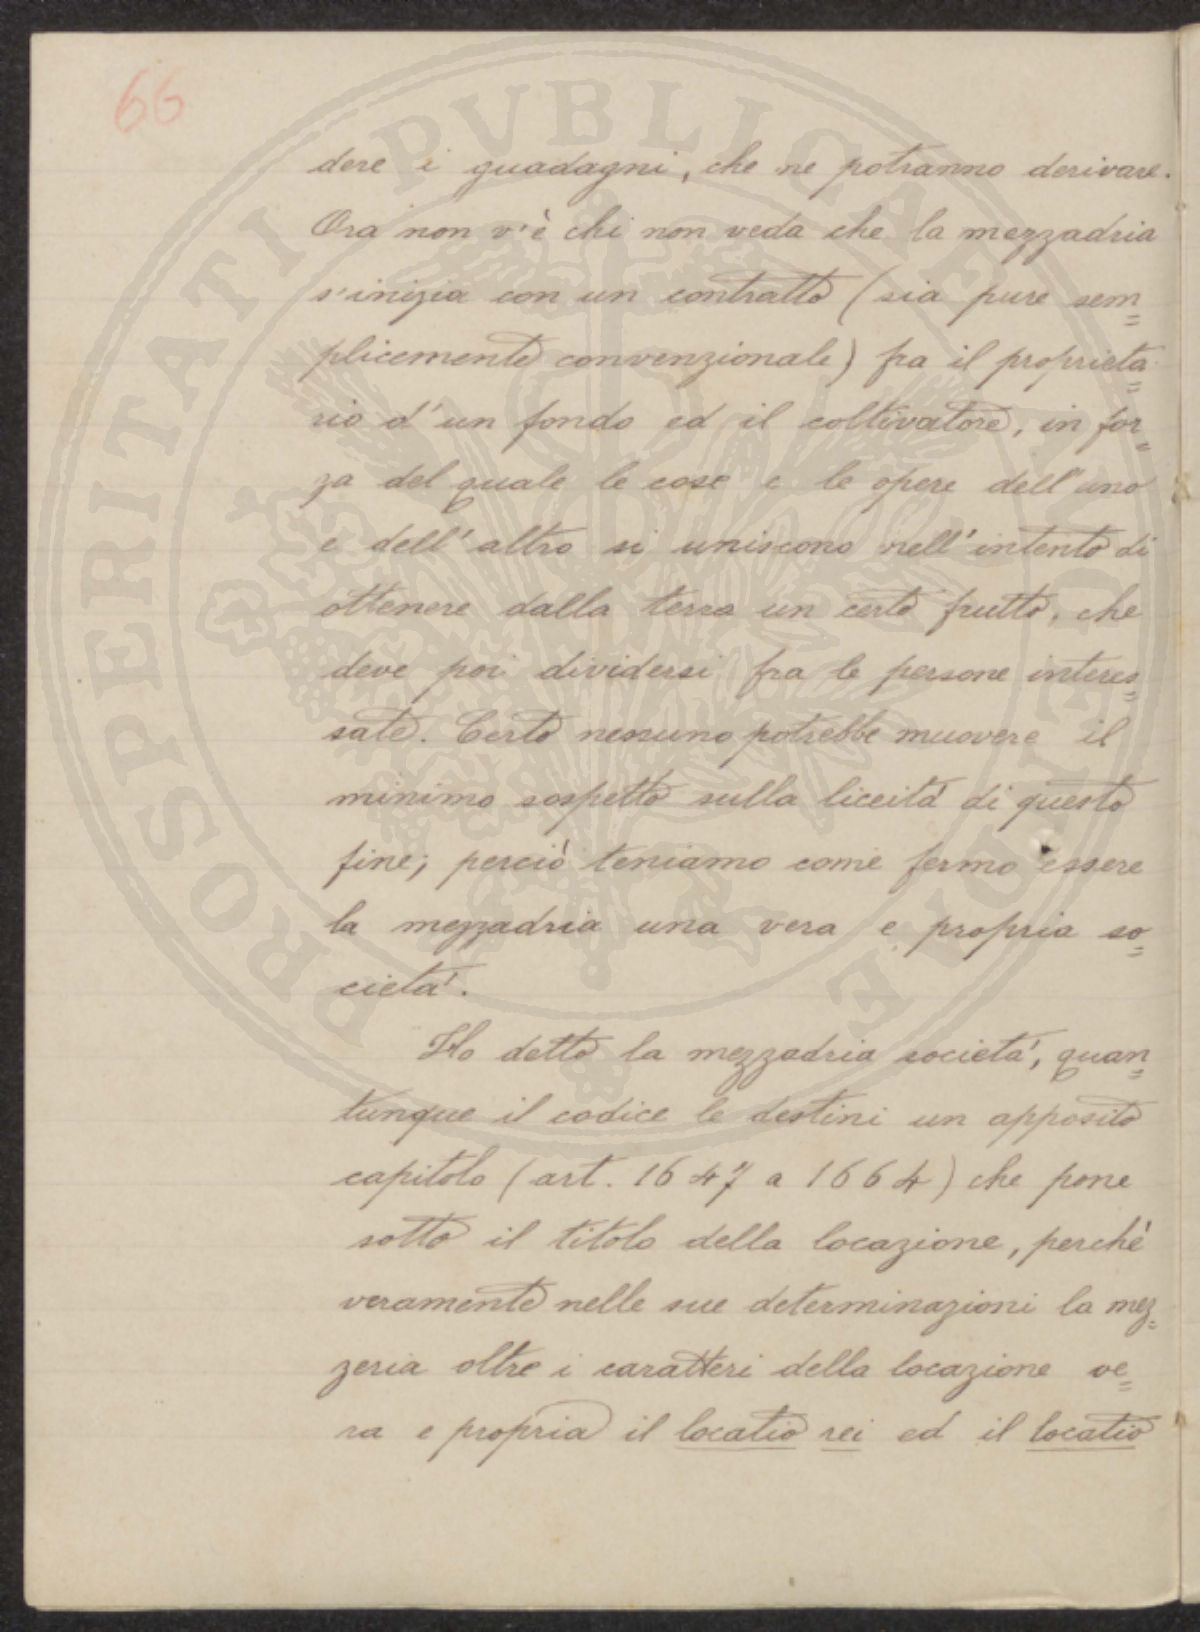 66
dere i guadagni, che ne potranno derivare.
Ora non v'è chi non veda che la mezzadria
s'inizia con un contratto (sia pure sem=
plicemente convenzionale) fra il proprieta=
rio d'un fondo ed il coltivatore, in for=
za del quale le cose e le opere dell'uno
e dell'altro si uniscono nell'intento di
ottenere dalla terra un certo frutto, che
deve poi dividersi fra le persone interes=
sate. Certo nessuno potrebbe muovere il
minimo sospetto sulla liceità di questo
fine; perciò teniamo come fermo essere
la mezzadria una vera e propria so=
cietà.
Ho detto la mezzadria società, quan=
tunque il codice le destini un apposito
capitolo (art. 1647 a 1664) che pone
sotto il titolo della locazione, perchè
veramente nelle sue determinazioni la mez=
zeria oltre i caratteri della locazione ve=
ra e propria il locatio rei ed il locatio
PROSPERITATI PVBLICAE